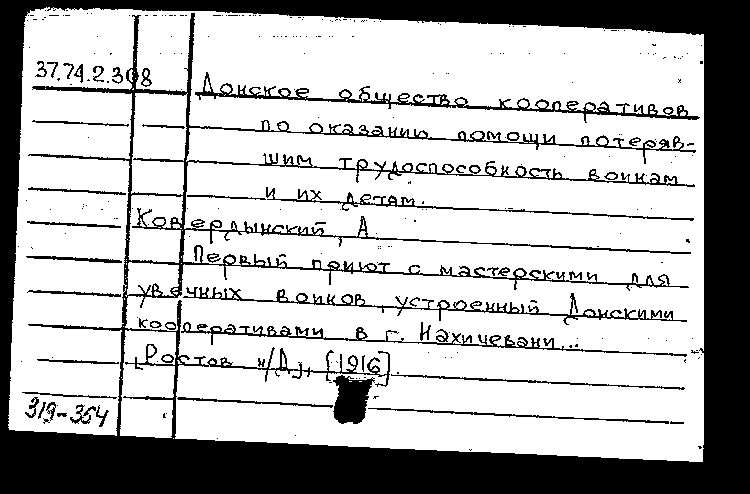 37.74.2.308
Донское общество кооперативов
по оказанию помощи потеряв-
шим трудоспособность воинам
и их детям.
Ковердынский, А
Первый приют с мастерскими для
увечных воинов, устроенный Донскими
кооперативами в г. Нахичевани...
[Ростов н/Д], [1916]
319-354